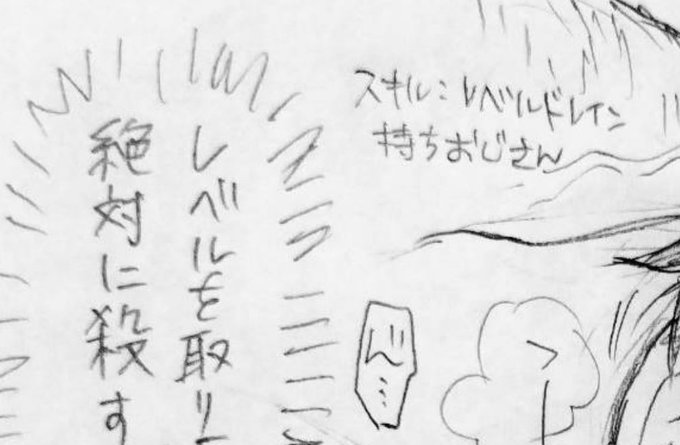 スキル：レベルドレイン
持ちおじさん
レベルを取り
絶対に殺す